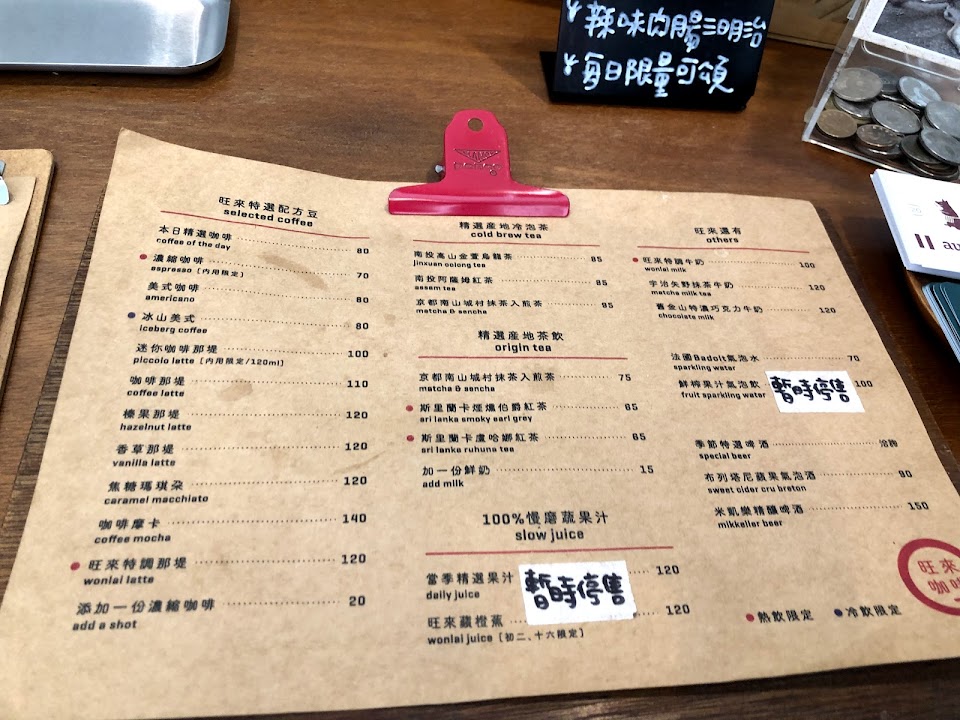 辣味肉腸三明治
每日限量可頌
旺來特選配方豆
selected coffee
本日精選咖啡 80
coffee of the day
濃縮咖啡 70
espresso〔內用限定〕
美式咖啡 80
americano
冰山美式 80
iceberg coffee
迷你咖啡那堤 100
piccolo latte〔內用限定/120ml〕
咖啡那堤 110
coffee latte
榛果那堤 120
hazelnut latte
香草那堤 120
vanilla latte
焦糖瑪琪朵 120
caramel macchiato
咖啡摩卡 140
coffee mocha
旺來特調那堤 120
wonlai latte
添加一份濃縮咖啡 20
add a shot
精選産地冷泡茶
cold brew tea
南投高山金萱烏龍茶 85
jinxuan oolong tea
南投阿薩姆紅茶 85
assam tea
京都南山城村抹茶入煎茶 95
matcha & sencha
精選産地茶飲
origin tea
京都南山城村抹茶入煎茶 75
matcha & sencha
斯里蘭卡煙燻伯爵紅茶 85
sri lanka smoky earl grey
斯里蘭卡盧哈娜紅茶 85
sri lanka ruhuna tea
加一份鮮奶 15
add milk
100%慢磨蔬果汁
slow juice
當季精選果汁 120
daily juice
暫時停售
旺來蘋橙蕉 120
wonlai juice〔初二、十六限定〕
旺來還有
others
旺來特調牛奶 100
wonlai milk
宇治矢野抹茶牛奶 120
matcha milk tea
舊金山特濃巧克力牛奶 120
chocolate milk
法國Badoit氣泡水 70
sparkling water
鮮榨果汁氣泡飲 100
fruit sparkling water
暫時停售
季節特選啤酒 洽詢
special beer
布列塔尼蘋果氣泡酒 90
sweet cider cru breton
米凱樂精釀啤酒 150
mikkeller beer
熱飲限定 冷飲限定
旺來
咖啡